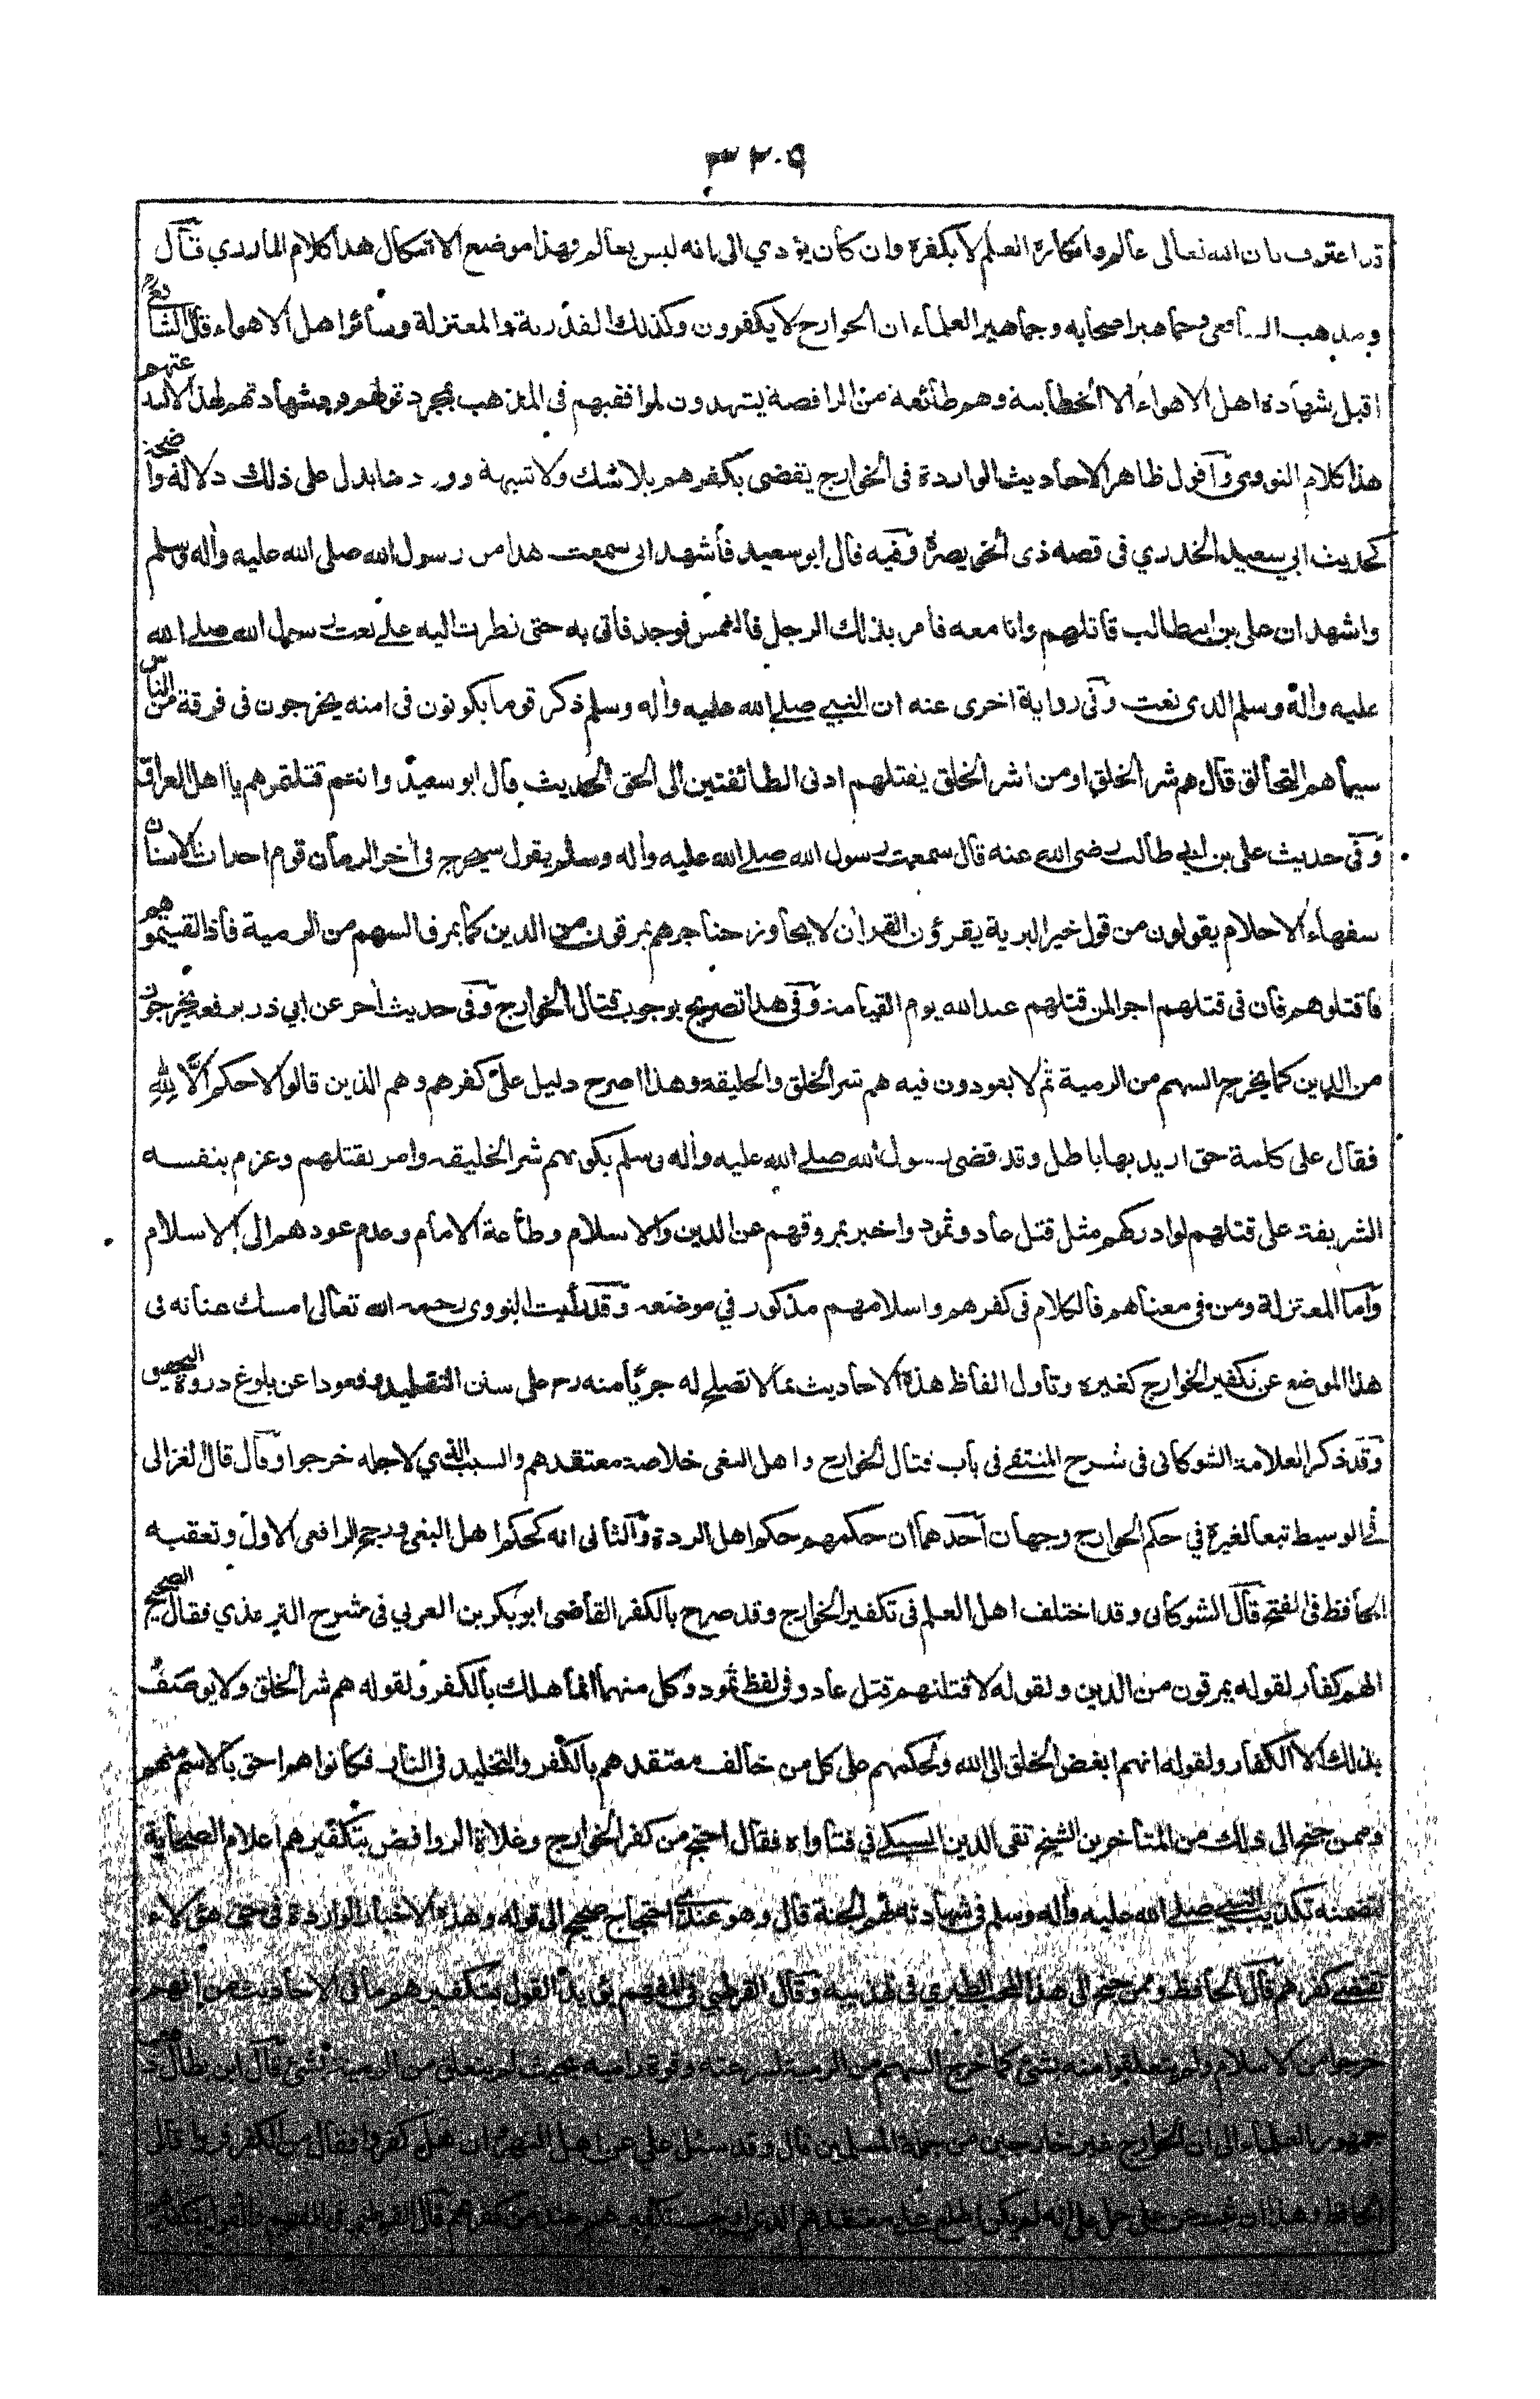 ٣٢٠٩
قد اعترف بان الله تعالى عالم وانكاره العلم لا يكفره وان كان يؤدي الى انه ليس بعالم وهذا موضع الاشكال هذا كلام المازري قال
ومذهب الشافعي وجماهير اصحابه وجماهير العلماء ان الخوارج لا يكفرون وكذلك القدرية والمعتزلة وسائر اهل الاهواء قال الشافعي
اقبل شهادة اهل الاهواء الا الخطابية وهم طائفة من الرافضة يشهدون لموافقيهم في المذهب بمجرد قولهم فرد شهادتهم لهذا لا لبدعتهم
هذا كلام النووي وأقول ظاهر الاحاديث الواردة في الخوارج يقضى بكفرهم بلا شك ولا شبهة وورد ما يدل على ذلك دلالة واضحة
كحديث ابي سعيد الخدري في قصة ذى الخويصرة وفيه قال ابو سعيد فأشهد اني سمعت هذا من رسول الله صلى الله عليه وأله وسلم
واشهد ان على بن ابي طالب قاتلهم وانا معه فامر بذلك الرجل فالتمس فوجد فاتى به حتى نظرت اليه على نعت رسول الله صلى الله
عليه وأله وسلم الذى نعت وفى رواية اخرى عنه ان النبي صلى الله عليه وأله وسلم ذكر قوما يكونون فى امته يخرجون فى فرقة من الناس
سيماهم التحالق قال هم شر الخلق او من اشر الخلق يقتلهم ادنى الطائفتين الى الحق الحديث قال ابو سعيد وانتم قتلتموهم يا اهل العراق
وفى حديث على بن ابي طالب رضي الله عنه قال سمعت رسول الله صلى الله عليه وأله وسلم يقول سيخرج فى أخر الزمان قوم احداث الاسنان
سفهاء الاحلام يقولون من قول خير البرية يقرؤن القرأن لا يجاوز حناجرهم يمرقون من الدين كما يمرق السهم من الرمية فاذا لقيتموهم
فاقتلوهم فان فى قتلهم اجرا لمن قتلهم عند الله يوم القيامة وفى هذا تصريح بوجوب قتال الخوارج وفى حديث أخر عن ابي ذر يرفعه يخرجون
من الدين كما يخرج السهم من الرمية ثم لا يعودون فيه هم شر الخلق والخليقة وهذا اصرح دليل على كفرهم وهم الذين قالوا لا حكم الا لله
فقال على كلمة حق اريد بها باطل وقد قضى رسول الله صلى الله عليه وأله وسلم بكونهم شر الخليقة وامر بقتلهم وعزم بنفسه
الشريفة على قتلهم لو ادركهم مثل قتل عاد وثمود واخبر بمروقهم عن الدين والاسلام وطاعة الامام وعدم عودهم الى الاسلام
وأما المعتزلة ومن فى معناهم فالكلام فى كفرهم واسلامهم مذكور في موضعه وقد رأيت النووى رحمه الله تعالى امسك عنانه فى
هذا الموضع عن تكفير الخوارج كغيره وتأول الفاظ هذة الاحاديث بما لا تصلح له جريا منه رح على سنن التقليد وقعودا عن بلوغ دروة التحقيق
وقد ذكر العلامة الشوكانى فى شرح المنتقى فى باب قتال الخوارج واهل البغى خلاصة معتقدهم والسبب الذي لاجله خرجوا وقال قال الغزالى
فى الوسيط تبعا لغيره في حكم الخوارج وجهان أحدهما ان حكمهم حكم اهل الردة والثانى انه كحكم اهل البغى ورجح الرافعى الاول وتعقبه
الحافظ فى الفتح قال الشوكانى وقد اختلف اهل العلم فى تكفير الخوارج وقد صرح بالكفر القاضى ابو بكر بن العربي فى شرح الترمذي فقال الصحيح
انهم كفار لقوله يمرقون من الدين ولقوله لاقتلنهم قتل عاد وفى لفظ ثمود وكل منهما انما هلك بالكفر ولقوله هم شر الخلق ولا يوصف
بذلك الا الكفار ولقوله انهم ابغض الخلق الى الله ولحكمهم على كل من خالف معتقدهم بالكفر والتخليد فى النار فكانوا هم احق بالاسم منهم
وممن جنح الى ذلك من المتأخرين الشيخ تقى الدين السبكى في فتاواه فقال احتج من كفر الخوارج وغلاة الروافض بتكفيرهم اعلام الصحابة
لتضمنه تكذيب النبي صلى الله عليه وأله وسلم فى شهادته لهم بالجنة قال وهو عندى احتجاج صحيح الى قوله وهذه الاخبار الواردة فى حق هؤلاء
تقتضى كفرهم قال الحافظ وممن جنح الى هذا الطبري فى تهذيبه وقال القرطبي فى المفهم يؤيد القول بتكفيرهم ما فى الاحاديث من انهم
خرجوا من الاسلام ولم يتعلقوا منه بشئ كما خرج السهم من الرمية لسرعته وقوة راميه بحيث لم يتعلق من الرمية بشئ قال ابن بطال ذهب
جمهور العلماء الى ان الخوارج غير خارجين من جملة المسلمين قال وقد سئل على عن اهل النهروان هل كفروا فقال من الكفر فروا قال
الحافظ وهذا ان ثبت عن على حمل على انه لم يكن اطلع على معتقدهم الذى اوجب تكفيرهم عند من كفرهم قال القرطبي فى المفهم والقول بتكفيرهم